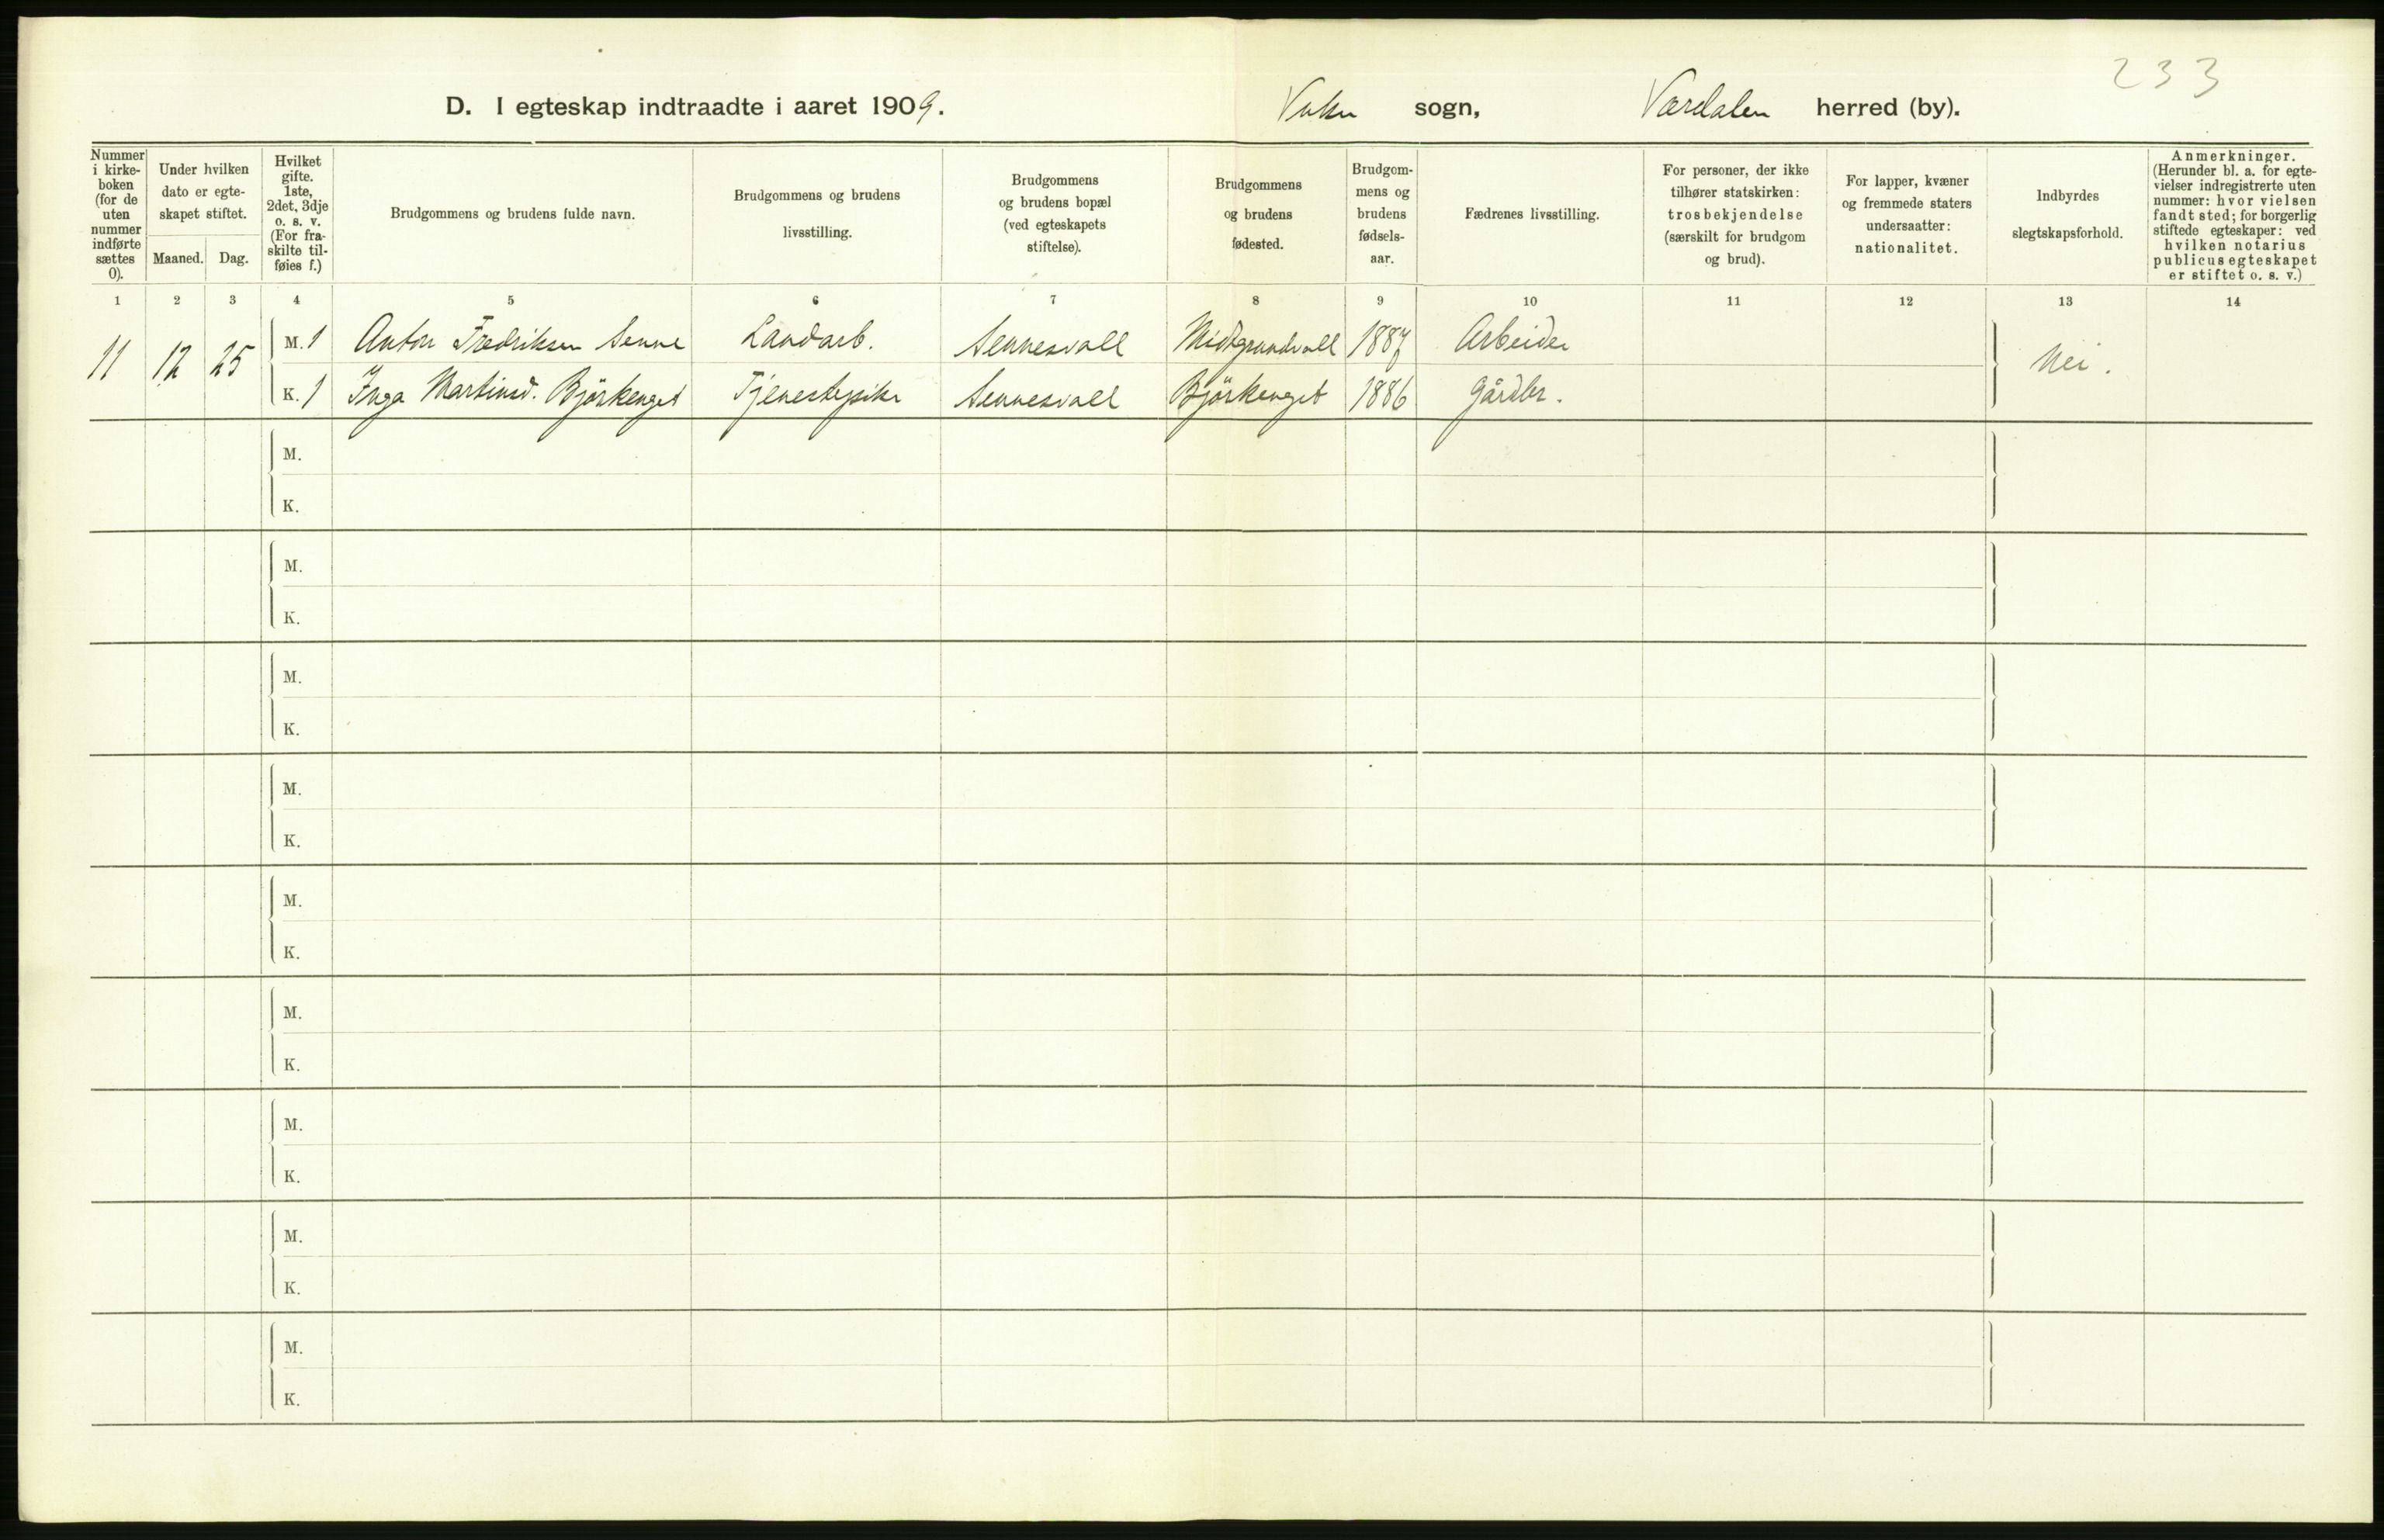 233
D. I egteskap indtraadte i aaret 1909. Vuku sogn, Værdalen herred (by).
Nummer i kirke-boken (for de uten nummer indførte sættes 0).
Under hvilken dato er egte-skapet stiftet.
Maaned. Dag.
Hvilket gifte. 1ste, 2det, 3dje o. s. v. (For fra-skilte til-føies f.)
Brudgommens og brudens fulde navn.
Brudgommens og brudens livsstilling.
Brudgommens og brudens bopæl (ved egteskapets stiftelse).
Brudgommens og brudens fødested.
Brudgom-mens og brudens fødsels-aar.
Fædrenes livsstilling.
For personer, der ikke tilhører statskirken: trosbekjendelse (særskilt for brudgom og brud).
For lapper, kvæner og fremmede staters undersaatter: nationalitet.
Indbyrdes slegtskapsforhold.
Anmerkninger. (Herunder bl. a. for egte-vielser indregistrerte uten nummer: hvor vielsen fandt sted; for borgerlig stiftede egteskaper: ved hvilken notarius publicus egteskapet er stiftet o. s. v.)
1 2 3 4 5 6 7 8 9 10 11 12 13 14
11 12 25 M. 1 Anton Fredriksen Senne Landarb. Sennesvall Midtgrundvall 1887 Arbeider Nei.
K. 1 Inga Martinsd. Björkenget Tjenestepike Sennesvall Björkenget 1886 Gårdbr.
M.
K.
M.
K.
M.
K.
M.
K.
M.
K.
M.
K.
M.
K.
M.
K.
M.
K.